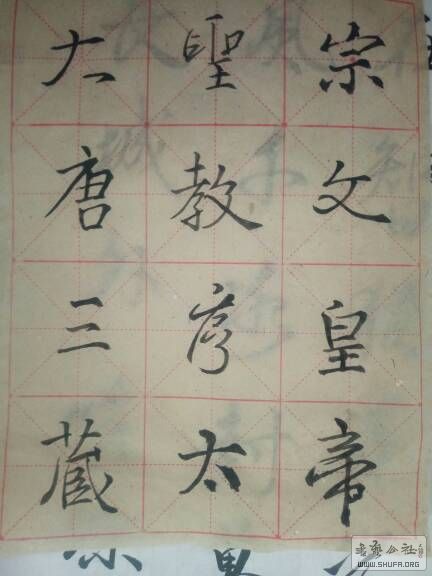 大唐三藏
聖教序太
宗文皇帝
書藝公社
WWW.SHUFA.ORG